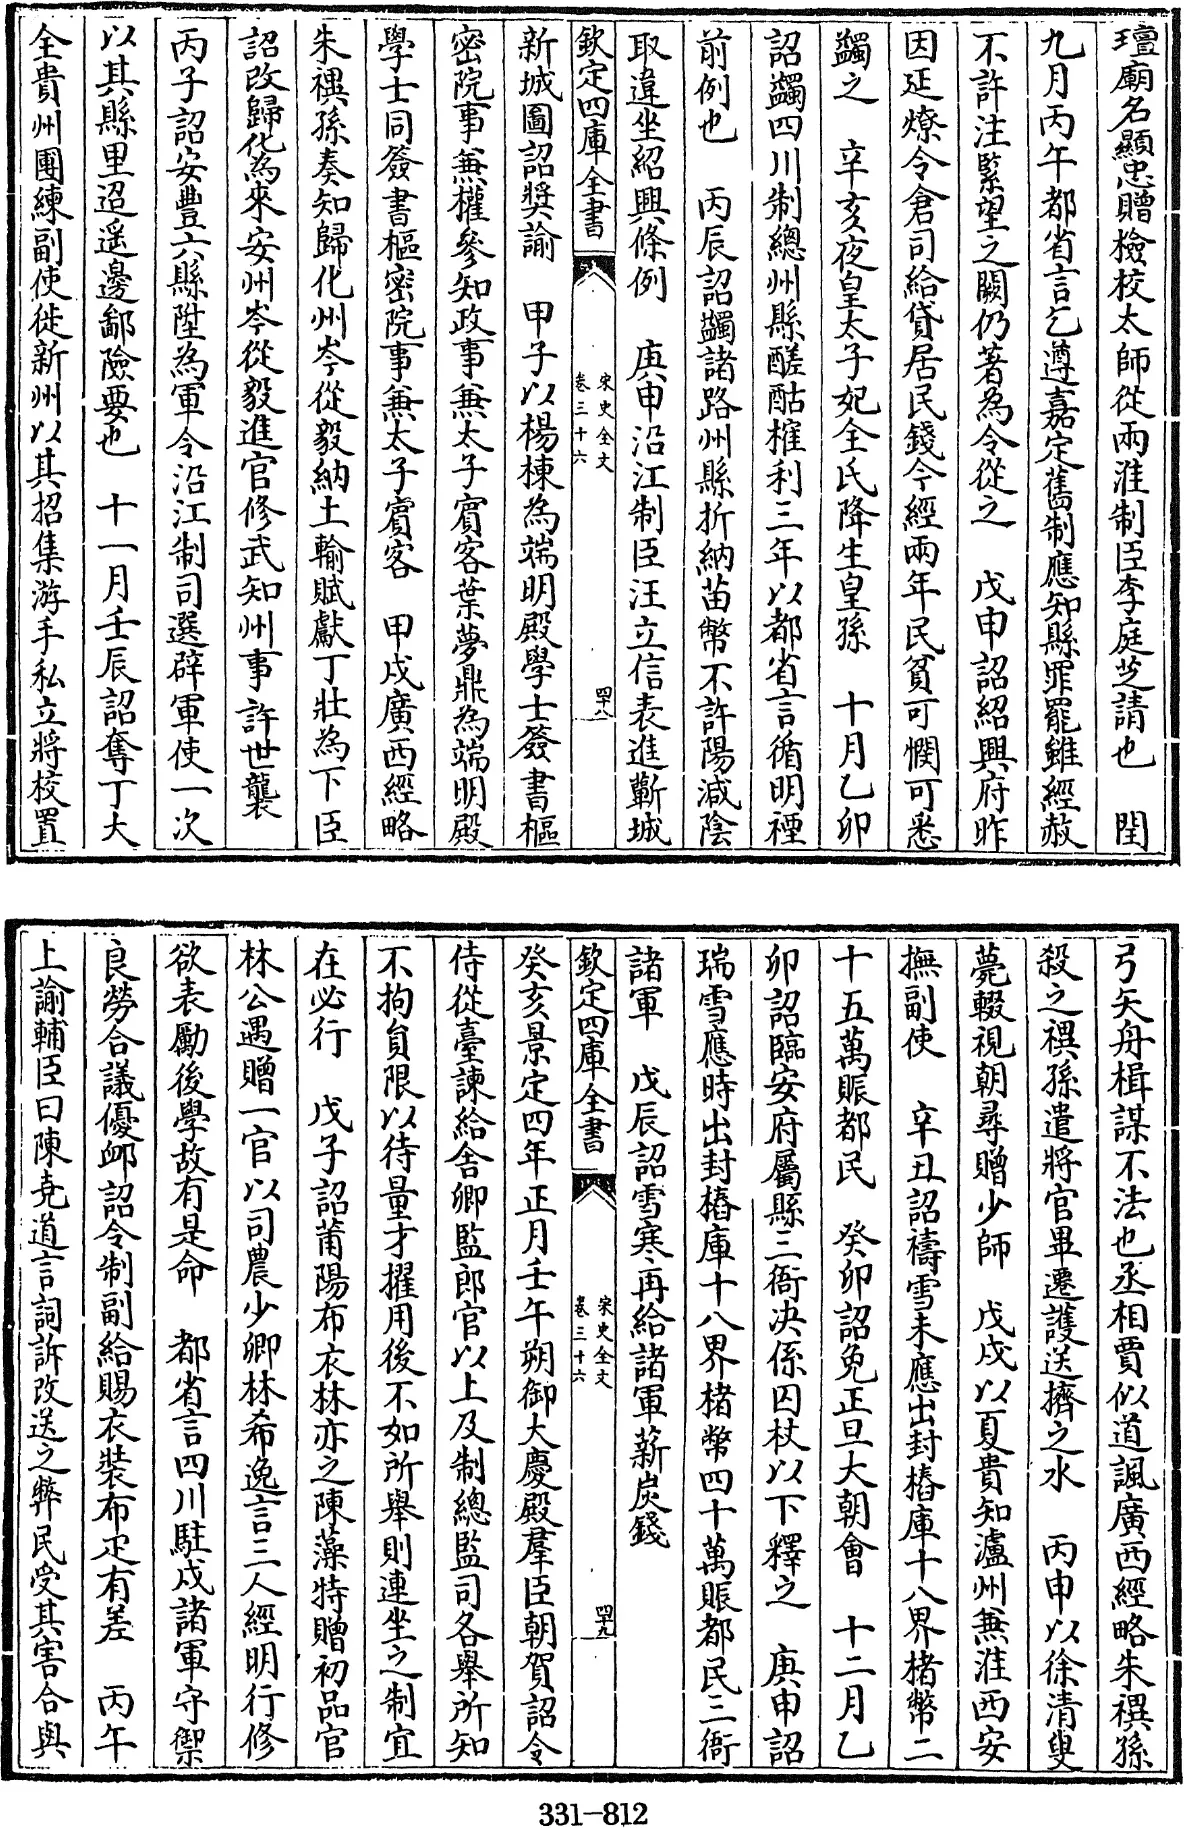 璮廟名顯忠贈檢校太師從兩淮制臣李庭芝請也　閏
九月丙午都省言乞遵嘉定舊制應知縣罪罷雖經赦
不許注緊望之闕仍著為令從之　戊申詔紹興府昨
因延燎令倉司給貸居民錢今經兩年民貧可憫可悉
蠲之　辛亥夜皇太子妃全氏降生皇孫　十月乙卯
詔蠲四川制總州縣醝酤榷利三年以都省言循明禋
前例也　丙辰詔蠲諸路州縣折納苗幣不許陽減陰
取違坐紹興條例　庚申沿江制臣汪立信表進蘄城
欽定四庫全書　宋史全文卷三十六　四十八
新城圖詔獎諭　甲子以楊棟為端明殿學士簽書樞
密院事兼權參知政事兼太子賓客葉夢鼎為端明殿
學士同簽書樞密院事兼太子賓客　甲戌廣西經略
朱禩孫奏知歸化州岑從毅納土輸賦獻丁壯為下臣
詔改歸化為來安州岑從毅進官修武知州事許世襲
丙子詔安豐六縣陞為軍令沿江制司選辟軍使一次
以其縣里迢遥邊鄙險要也　十一月壬辰詔奪丁大
全貴州團練副使徙新州以其招集游手私立將校置
弓矢舟楫謀不法也丞相賈似道諷廣西經略朱禩孫
殺之禩孫遣將官畢遷護送擠之水　丙申以徐清叟
薨輟視朝尋贈少師　戊戌以夏貴知廬州兼淮西安
撫副使　辛丑詔禱雪未應出封樁庫十八界楮幣二
十五萬賑都民　癸卯詔免正旦大朝會　十二月乙
卯詔臨安府屬縣三衙決係囚杖以下釋之　庚申詔
瑞雪應時出封樁庫十八界楮幣四十萬賑都民三衙
諸軍　戊辰詔雪寒再給諸軍薪炭錢
欽定四庫全書　宋史全文卷三十六　四十九
癸亥景定四年正月壬午朔御大慶殿羣臣朝賀詔令
侍從臺諫給舍卿監郎官以上及制總監司各舉所知
不拘員限以待量才擢用後不如所舉則連坐之制宜
在必行　戊子詔莆陽布衣林亦之陳藻特贈初品官
林公遇贈一官以司農少卿林希逸言三人經明行修
欲表勵後學故有是命　都省言四川駐戍諸軍守禦
良勞合議優卹詔令制副給賜衣裝布疋有差　丙午
上諭輔臣曰陳堯道言詞訴改送之弊民受其害合與
331-812